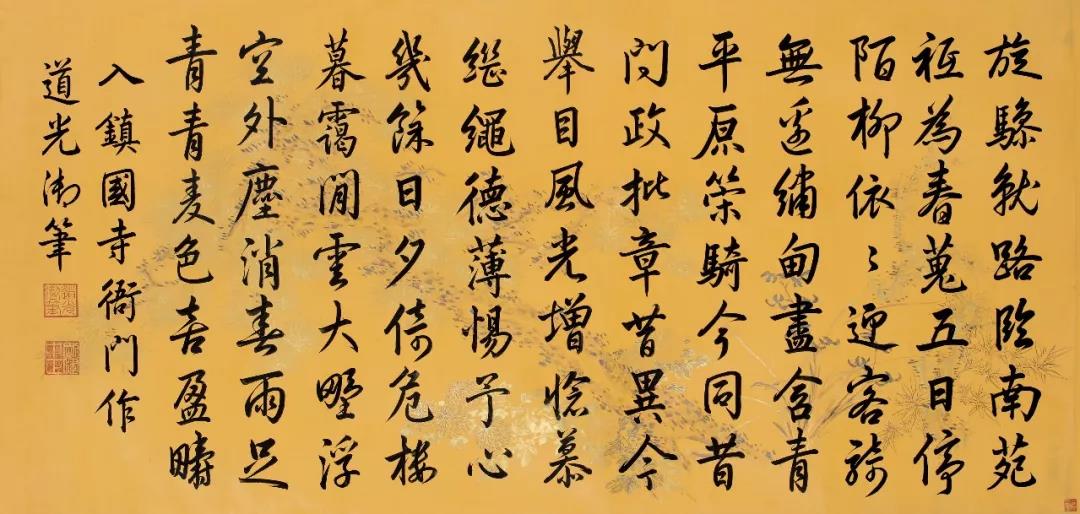 旋驂就路臨南苑
祇為春蒐五日停
陌柳依〻迎客騎
無邊繡甸盡含青
平原策騎今同昔
問政批章昔異今
舉目風光增愴慕
繼繩德薄惕予心
幾餘日夕倚危樓
暮靄閒雲大野浮
空外塵消春雨足
青青麦色喜盈疇
入鎮國寺衙門作
道光御筆